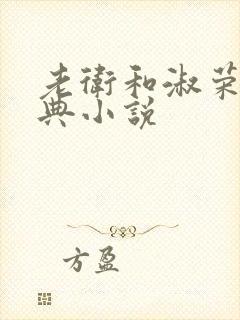 老衛和淑荣
典小説
方盈